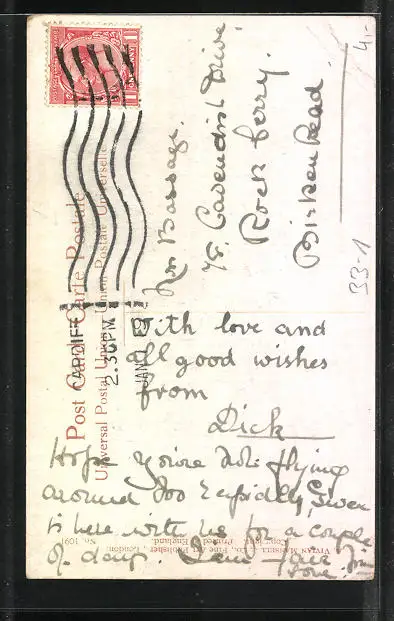 ONE PENNY
CARDIFF
2.30 PM
JAN
Post Card Carte Postale
Universal Postal Union. Union Postale Universelle.
Cavendish Drive
Rock Ferry.
Birkenhead.
4,-
33-1
With love and
all good wishes
from
Dick
Hope you're not flying
around too rapidly, Gwen
is here with me for a couple
of days. love
Vivian Mansell & Co., Fine Art Publisher, London.
Copyright. Printed England. No. 1091